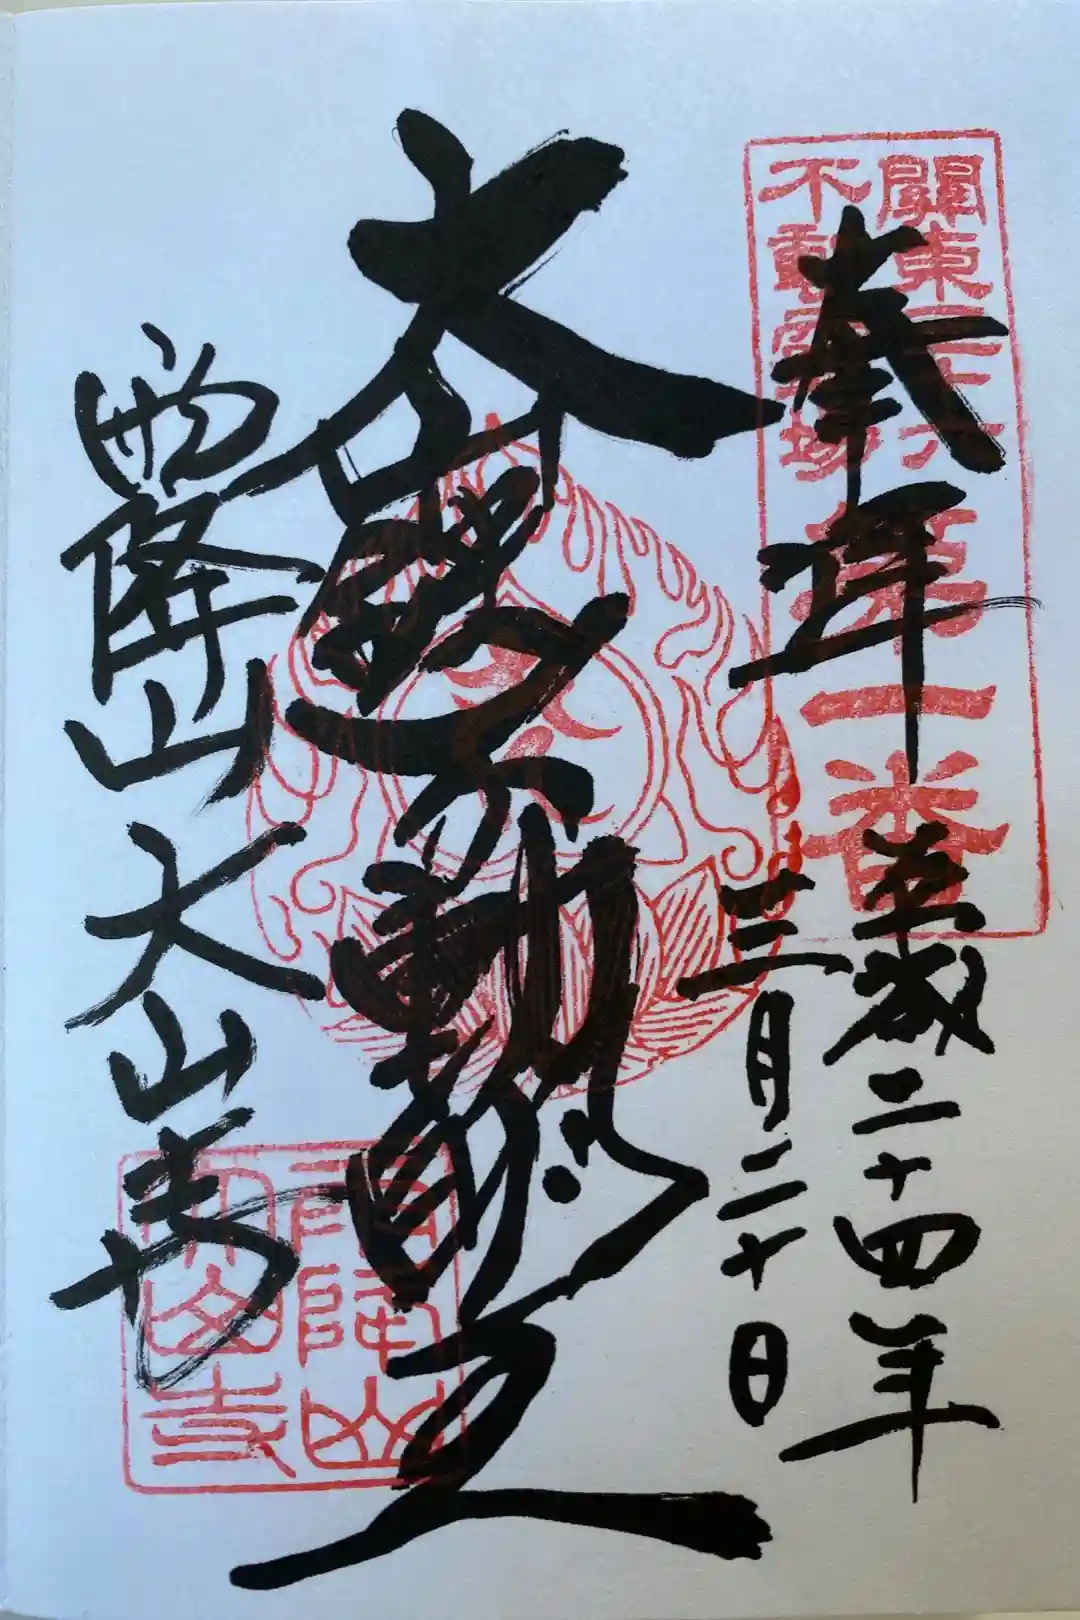 關東三十六
不動靈場
第一番
奉拝
平成二十四年
三月二十日
大 不動明王
雨降山大山寺
雨降山
大山寺